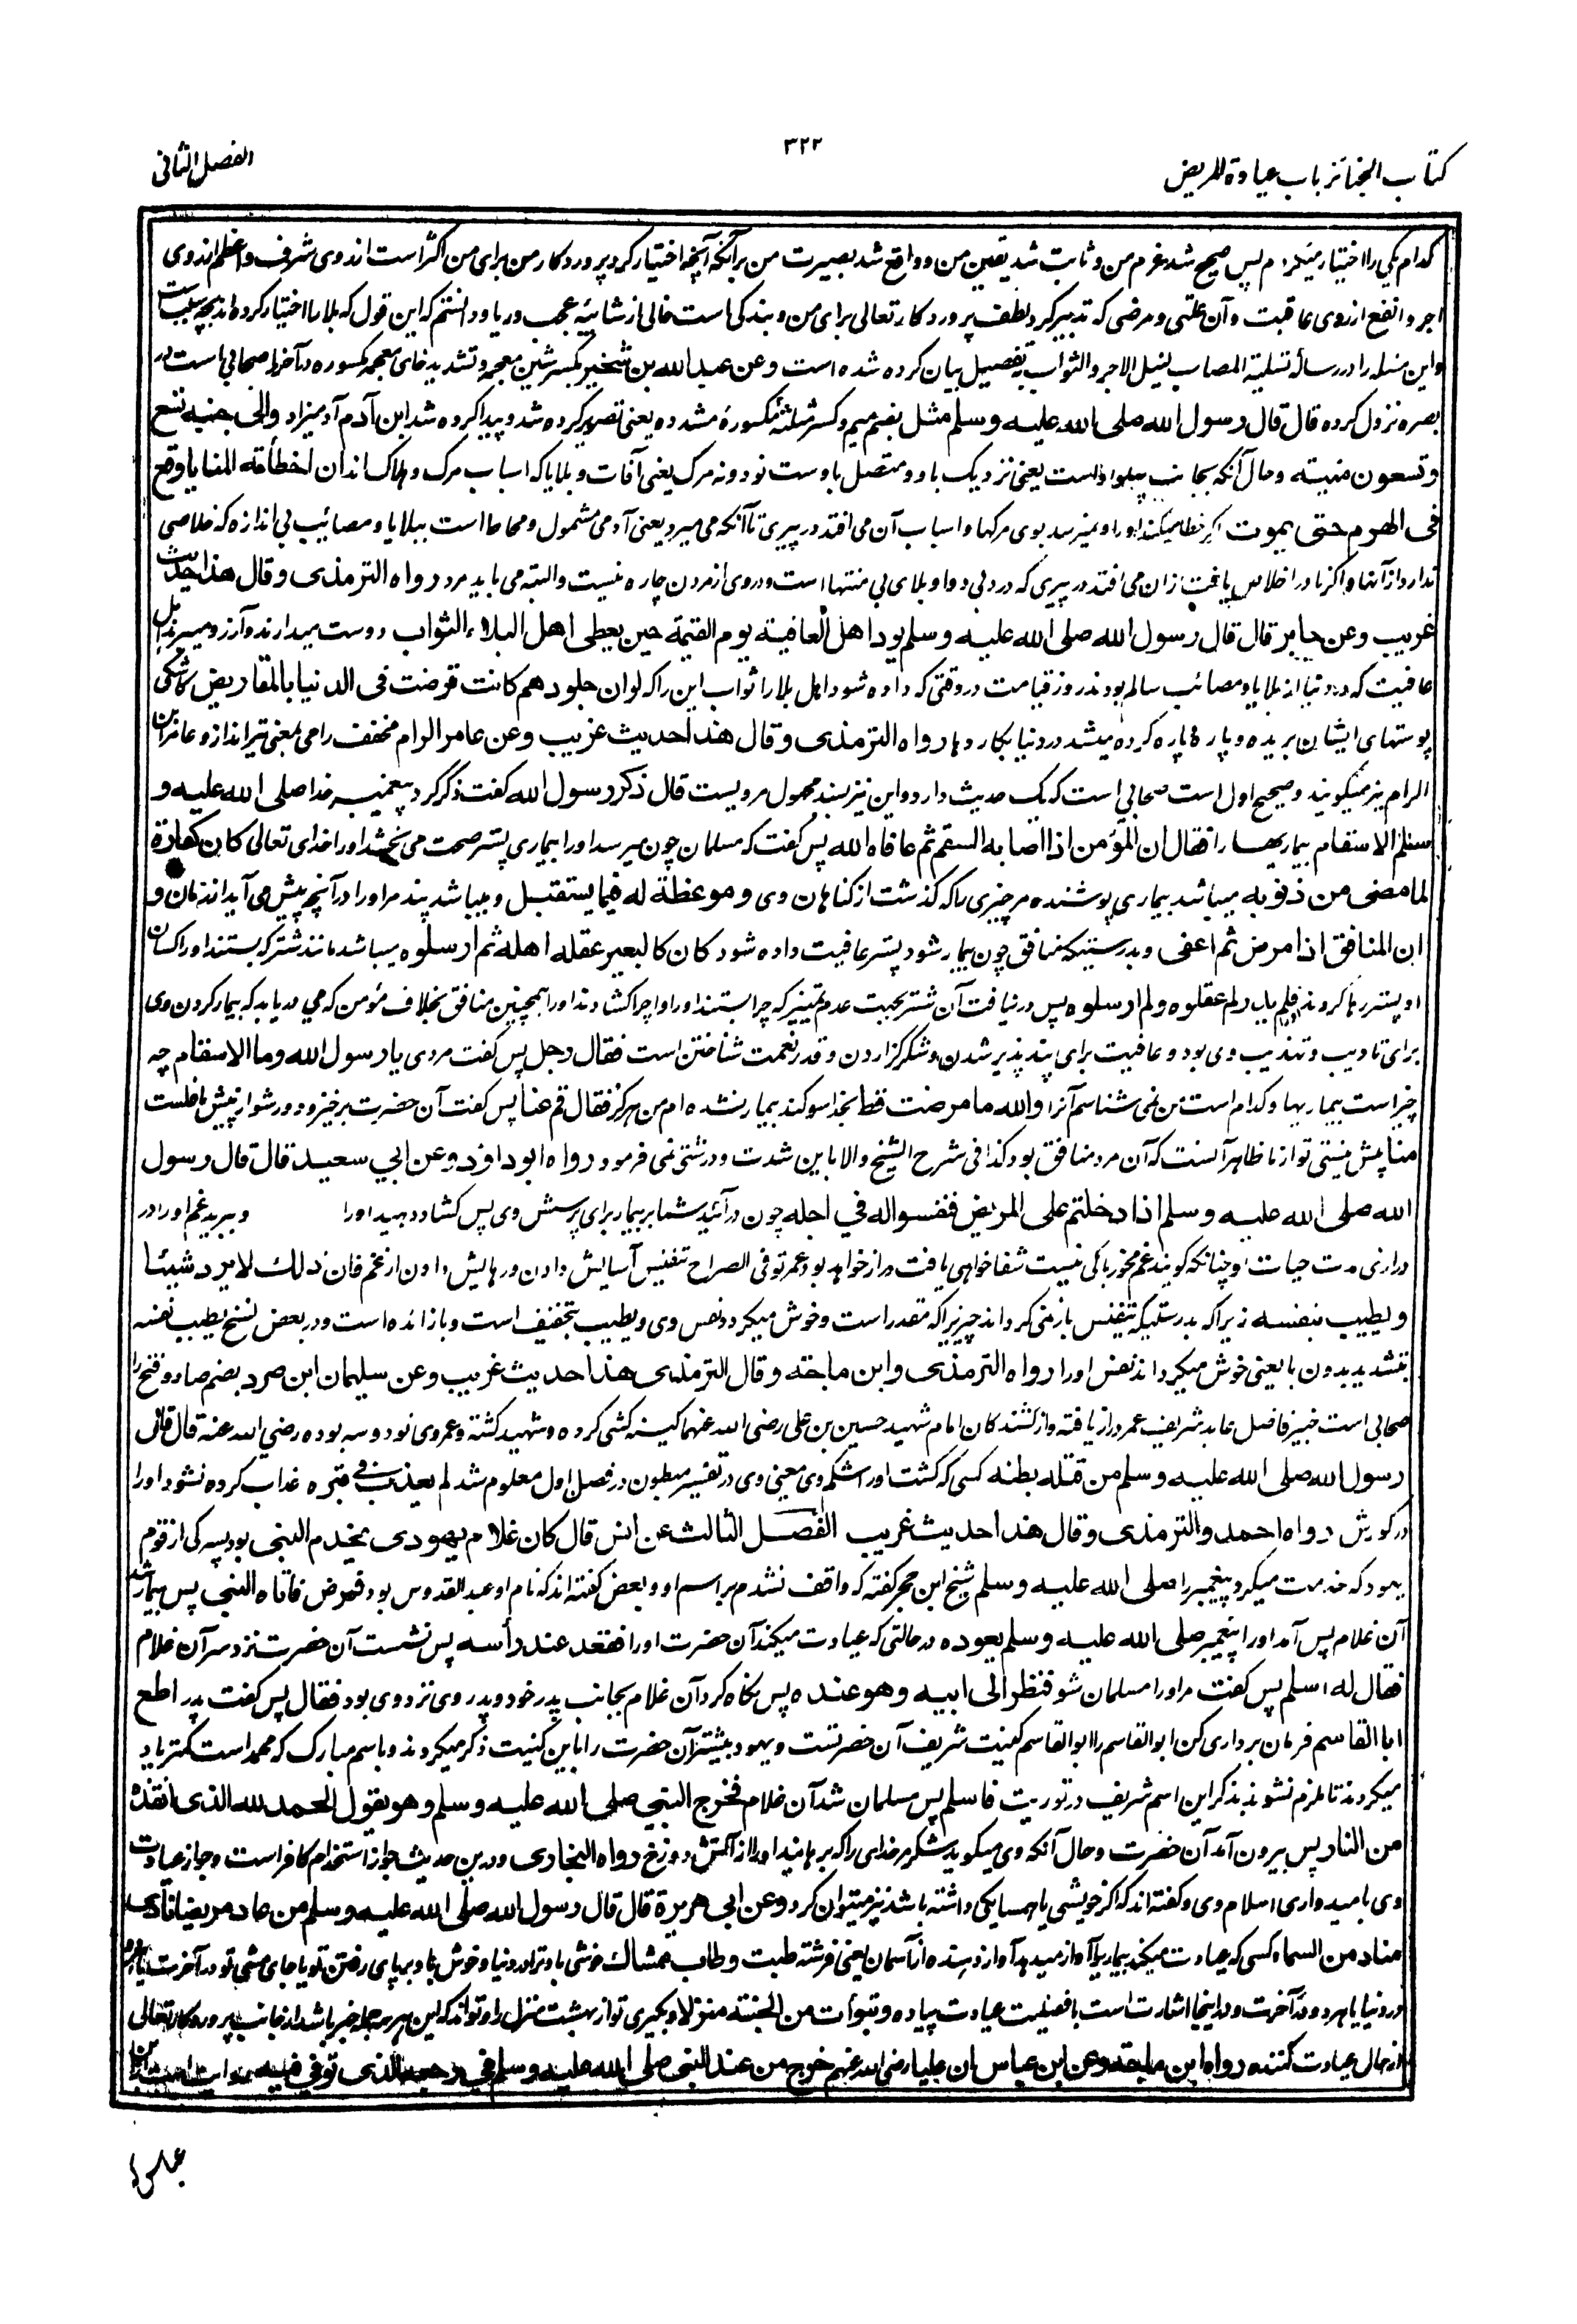 كتاب الجنائز باب عيادة المريض
۳۲۲
الفصل الثانی
كدام یکی را اختیار میکردم پس صحیح شد عزم من و ثابت شد یقین من و واقع شد بصیرت من برآنکه آنچه اختیار کرد پروردکار من برای من اکثر است از روی شرف و اعظم از روی
اجر و انفع از روی عاقبت و آن علتی و مرضی که تدبیر کرد لطف پروردکار تعالی برای من و بندکی است خالی از شائبهٔ عجب و ریا و دانستم که این قول که بلا را اختیار کرده اند بچه سبب است
و این مسئله را در رسالهٔ تسلیة المصاب لنیل الاجر و الثواب بتفصیل بیان کرده شده است وعن عبد الله بن شخیر بکسر شین معجمه و تشدید خای معجمه مکسوره در آخر را صحابی است در
بصره نزول کرده قال قال رسول الله صلی الله علیه وسلم مثل بضم میم و کسر مثلثهٔ مکسورهٔ مشدده یعنی تصویر کرده شد و پیدا کرده شد ابن آدم آدمیزاد والی جنبه تسع
وتسعون منیته وحال آنکه بجانب پهلو او است یعنی نزدیک باو و متصل باوست نود و نه مرک یعنی آفات و بلایا که اسباب مرک و هلاک اند ان اخطأته المنایا وقع
فی الهرم حتی یموت اکر خطا میکند او را و نمیرسد بوی مرکها و اسباب آن می افتد در پیری تا آنکه می میرد یعنی آدمی مشمول و محاط است ببلایا و مصائب بی اندازه که خلاصی
ندارد از آنها و اکر نادر اخلاص یافت ازان می افتد در پیری که درد بی دوا و بلای بی منتها است و در وی از مردن چاره نیست و البته می باید مرد رواه الترمذی وقال هذا حدیث
غریب وعن جابر قال قال رسول الله صلی الله علیه وسلم یود اهل العافیة یوم القیمة حین یعطی اهل البلاء الثواب دوست میدارند و آرزو میبرند اهل
عافیت که در دنیا از بلایا و مصائب سالم بودند روز قیامت در وقتی که داده شود اهل بلا را ثواب این را که لو ان جلودهم کانت قرضت فی الدنیا بالمقاریض کاشکی
پوستهای ایشان بریده و پاره پاره کرده میشد در دنیا بکاردها رواه الترمذی وقال هذا حدیث غریب وعن عامر الرام مخفف رامی بمعنی تیرانداز و عامر ابن
الرام نیز میکویند و صحیح اول است صحابی است که یک حدیث دارد و این نیز بسند مجهول مرویست قال ذکر رسول الله کفت ذکر کرد پیغمبر خدا صلی الله علیه و
سلم الاسقام بیماریها را فقال ان المؤمن اذا اصابه السقم ثم عافاه الله پس کفت که مسلمان چون میرسد او را بیماری پستر صحت می بخشد او را خدای تعالی کان کفارة
لما مضی من ذنوبه میباشد بیماری پوشنده مر چیزی را که کذشت از کناهان وی وموعظة له فیما یستقبل و میباشد پند مر او را در آنچه پیش می آید از زمان و
ان المنافق اذا مرض ثم اعفی و بدرستیکه منافق چون بیمار شود پستر عافیت داده شود کان کالبعیر عقله اهله ثم ارسلوه میباشد مانند شتر که بستند او را کسان
او پستر رها کردند فلم یدر لم عقلوه ولم ارسلوه پس در نیافت آن شتر بجهت عدم تمییز که چرا بستند او را و چرا کشادند او را همچنین منافق بخلاف مؤمن که می دریابد که بیمار کردن وی
برای تادیب و تهذیب وی بود و عافیت برای پند پذیر شدن و شکر کزاردن و قدر نعمت شناختن است فقال رجل پس کفت مردی یا رسول الله وما الاسقام چه
چیز است بیماریها و کدام است من نمی شناسم آنرا والله ما مرضت قط بخدا سوکند بیمار نشده ام من هرکز فقال قم عنا پس کفت آن حضرت برخیز و دور شو از پیش ما فلست
منا پس نیستی تو از ما ظاهر آنست که آن مرد منافق بود کذا فی شرح الشیخ و الا باین شدت و درشتی نمی فرمود رواه ابو داؤد وعن ابی سعید قال قال رسول
الله صلی الله علیه وسلم اذا دخلتم علی المریض فنفسوا له فی اجله چون در آئید شما بر بیمار برای پرسش وی پس کشاد دهید او را و ببرید غم او را در
درازی مدت حیات او چنانکه کویند غم مخور باکی نیست شفا خواهی یافت و دراز خواهد بود عمر تو فی الصراح تنفیس آسایش دادن و رهایش دادن از غم فان ذلک لا یرد شیئا
ویطیب بنفسه زیرا که بدرستیکه تنفیس باز نمی کرداند چیزی را که مقدر است و خوش میکردد نفس وی و یطیب بتخفیف است و با زائده است و در بعض نسخ یطیب نفسه
بتشدید بدون با یعنی خوش میکرداند نفس او را رواه الترمذی وابن ماجة وقال الترمذی هذا حدیث غریب وعن سلیمان ابن صرد بضم صاد و فتح را
صحابی است خیر فاضل عابد شریف عمر دراز یافته و از کشندکان امام شهید حسین بن علی رضی الله عنهما کینه کشی کرده و شهید کشته و عمر وی نود و سه بوده رضی الله عنه قال قال
رسول الله صلی الله علیه وسلم من قتله بطنه کسی که کشت او را شکم وی معنی وی در تفسیر مبطون در فصل اول معلوم شد لم یعذب فی قبره عذاب کرده نشود او را
در کورش رواه احمد والترمذی وقال هذا حدیث غریب الفصل الثالث عن انس قال کان غلام یهودی یخدم النبی بود پسرکی از قوم
یهود که خدمت میکرد پیغمبر را صلی الله علیه وسلم شیخ ابن حجر کفته که واقف نشدم بر اسم او و بعض کفته اند که نام او عبد القدوس بود فمرض فاتاه النبی پس بیمار شد
آن غلام پس آمد او را پیغمبر صلی الله علیه وسلم یعوده در حالتی که عیادت میکند آن حضرت او را فقعد عند رأسه پس نشست آن حضرت نزد سر آن غلام
فقال له اسلم پس کفت مر او را مسلمان شو فنظر الی ابیه وهو عنده پس نکاه کرد آن غلام بجانب پدر خود و پدر وی نزد وی بود فقال پس کفت پدر اطع
ابا القاسم فرمان برداری کن ابو القاسم را ابو القاسم کنیت شریف آن حضرتست و یهود بیشتر آن حضرت را باین کنیت ذکر میکردند و باسم مبارک که محمد است کمتر یاد
میکردند تا ملزم نشوند بذکر این اسم شریف در توریت فاسلم پس مسلمان شد آن غلام فخرج النبی صلی الله علیه وسلم وهو یقول الحمد لله الذی انقذه
من النار پس بیرون آمد آن حضرت و حال آنکه وی میکوید شکر مر خدای را که برهانید او را از آتش دوزخ رواه البخاری و درین حدیث جواز استخدام کافر است و جواز عیادت
وی بامیدواری اسلام وی و کفته اند که اکر خویشی یا همسایکی داشته باشد نیز میتوان کرد وعن ابی هریرة قال قال رسول الله صلی الله علیه وسلم من عاد مریضا نادی
مناد من السماء کسی که عیادت میکند بیماریرا آواز میدهد آواز دهنده از آسمان یعنی فرشته طبت وطاب ممشاک خوشی باد ترا در دنیا و خوش باد بپای رفتن تو یا جای مشی تو در آخرت
در دنیا یا هر دو در آخرت و در اینجا اشارت است بافضلیت عیادت پیاده وتبوأت من الجنة منزلا و بکیری تو از بهشت منزل را و تواند که این هر سه جمله خبر باشد از جانب پروردکار تعالی
از حال عیادت کننده رواه ابن ماجة وعن ابن عباس ان علیا رضی الله عنهم خرج من عند النبی صلی الله علیه وسلم فی وجعه الذی توفی فیه